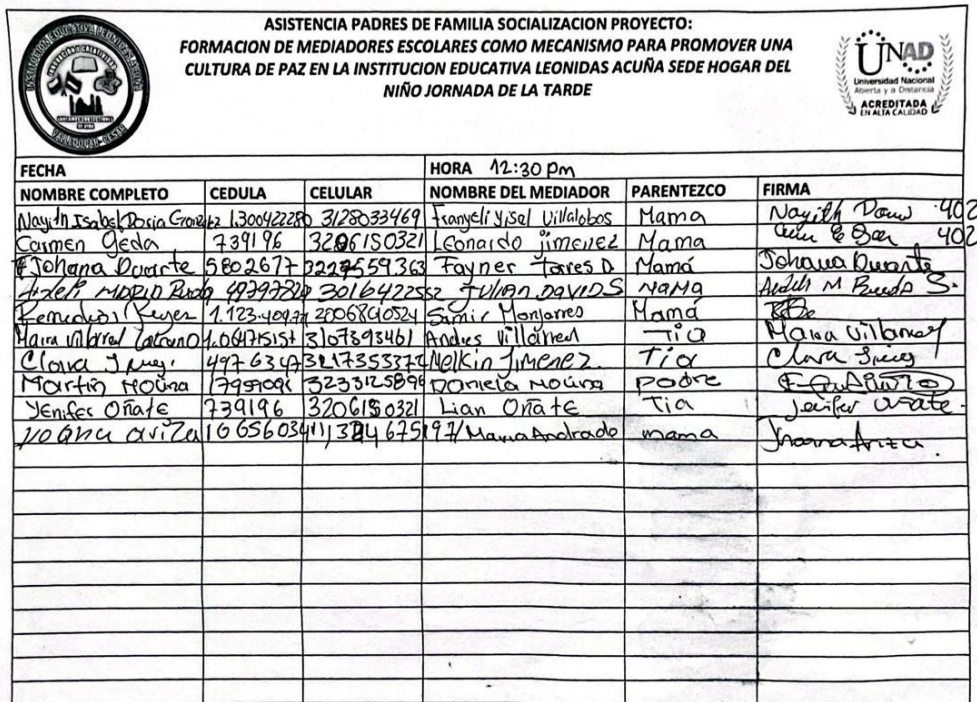 ASISTENCIA PADRES DE FAMILIA SOCIALIZACION PROYECTO:
FORMACION DE MEDIADORES ESCOLARES COMO MECANISMO PARA PROMOVER UNA
CULTURA DE PAZ EN LA INSTITUCION EDUCATIVA LEONIDAS ACUÑA SEDE HOGAR DEL
NIÑO JORNADA DE LA TARDE
UNAD
Universidad Nacional
Abierta y a Distancia
ACREDITADA
EN ALTA CALIDAD
VALLEDUPAR-CESAR
FECHA HORA 12:30 pm
NOMBRE COMPLETO CEDULA CELULAR NOMBRE DEL MEDIADOR PARENTEZCO FIRMA
Nayith Isabel 1.300422280 3128033469 Franyeli Yisal Villalobos Mama Nayith 402
Carmen Geda 739196 3206150321 Leonardo jimenez Mama 402
Johana Duarte 5802677 3227559363 Fayner Torres D Mamá Johana Duarte
JULIAN DAVID S MaMa
Remedios Reyes 2006840524 Samir Monjarres Mamá
Maira Villarreal 1.064715157 3107393461 Andres Villarreal Tio Maira Villarreal
Clara 3217353372 Nelkin Jimenez Tia Clara
Martin Molina 3233125894 Daniela Molina padre
Yenifer Oñate 739196 3206150321 Lian Oñate Tia Jenifer Oñate
Maria Andrado mama Jhoana Ariza